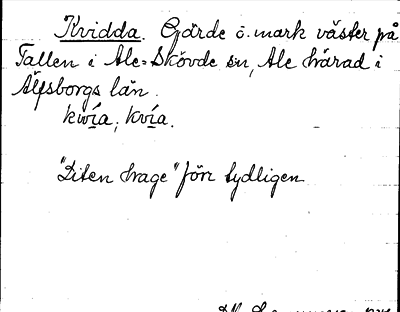 Kvidda. Gärde o. mark väster på
Tallen i Ale-Skövde sn, Ale härad i
Älfsborgs län.
kwía, kvía.
"Liten hage" förr tydligen